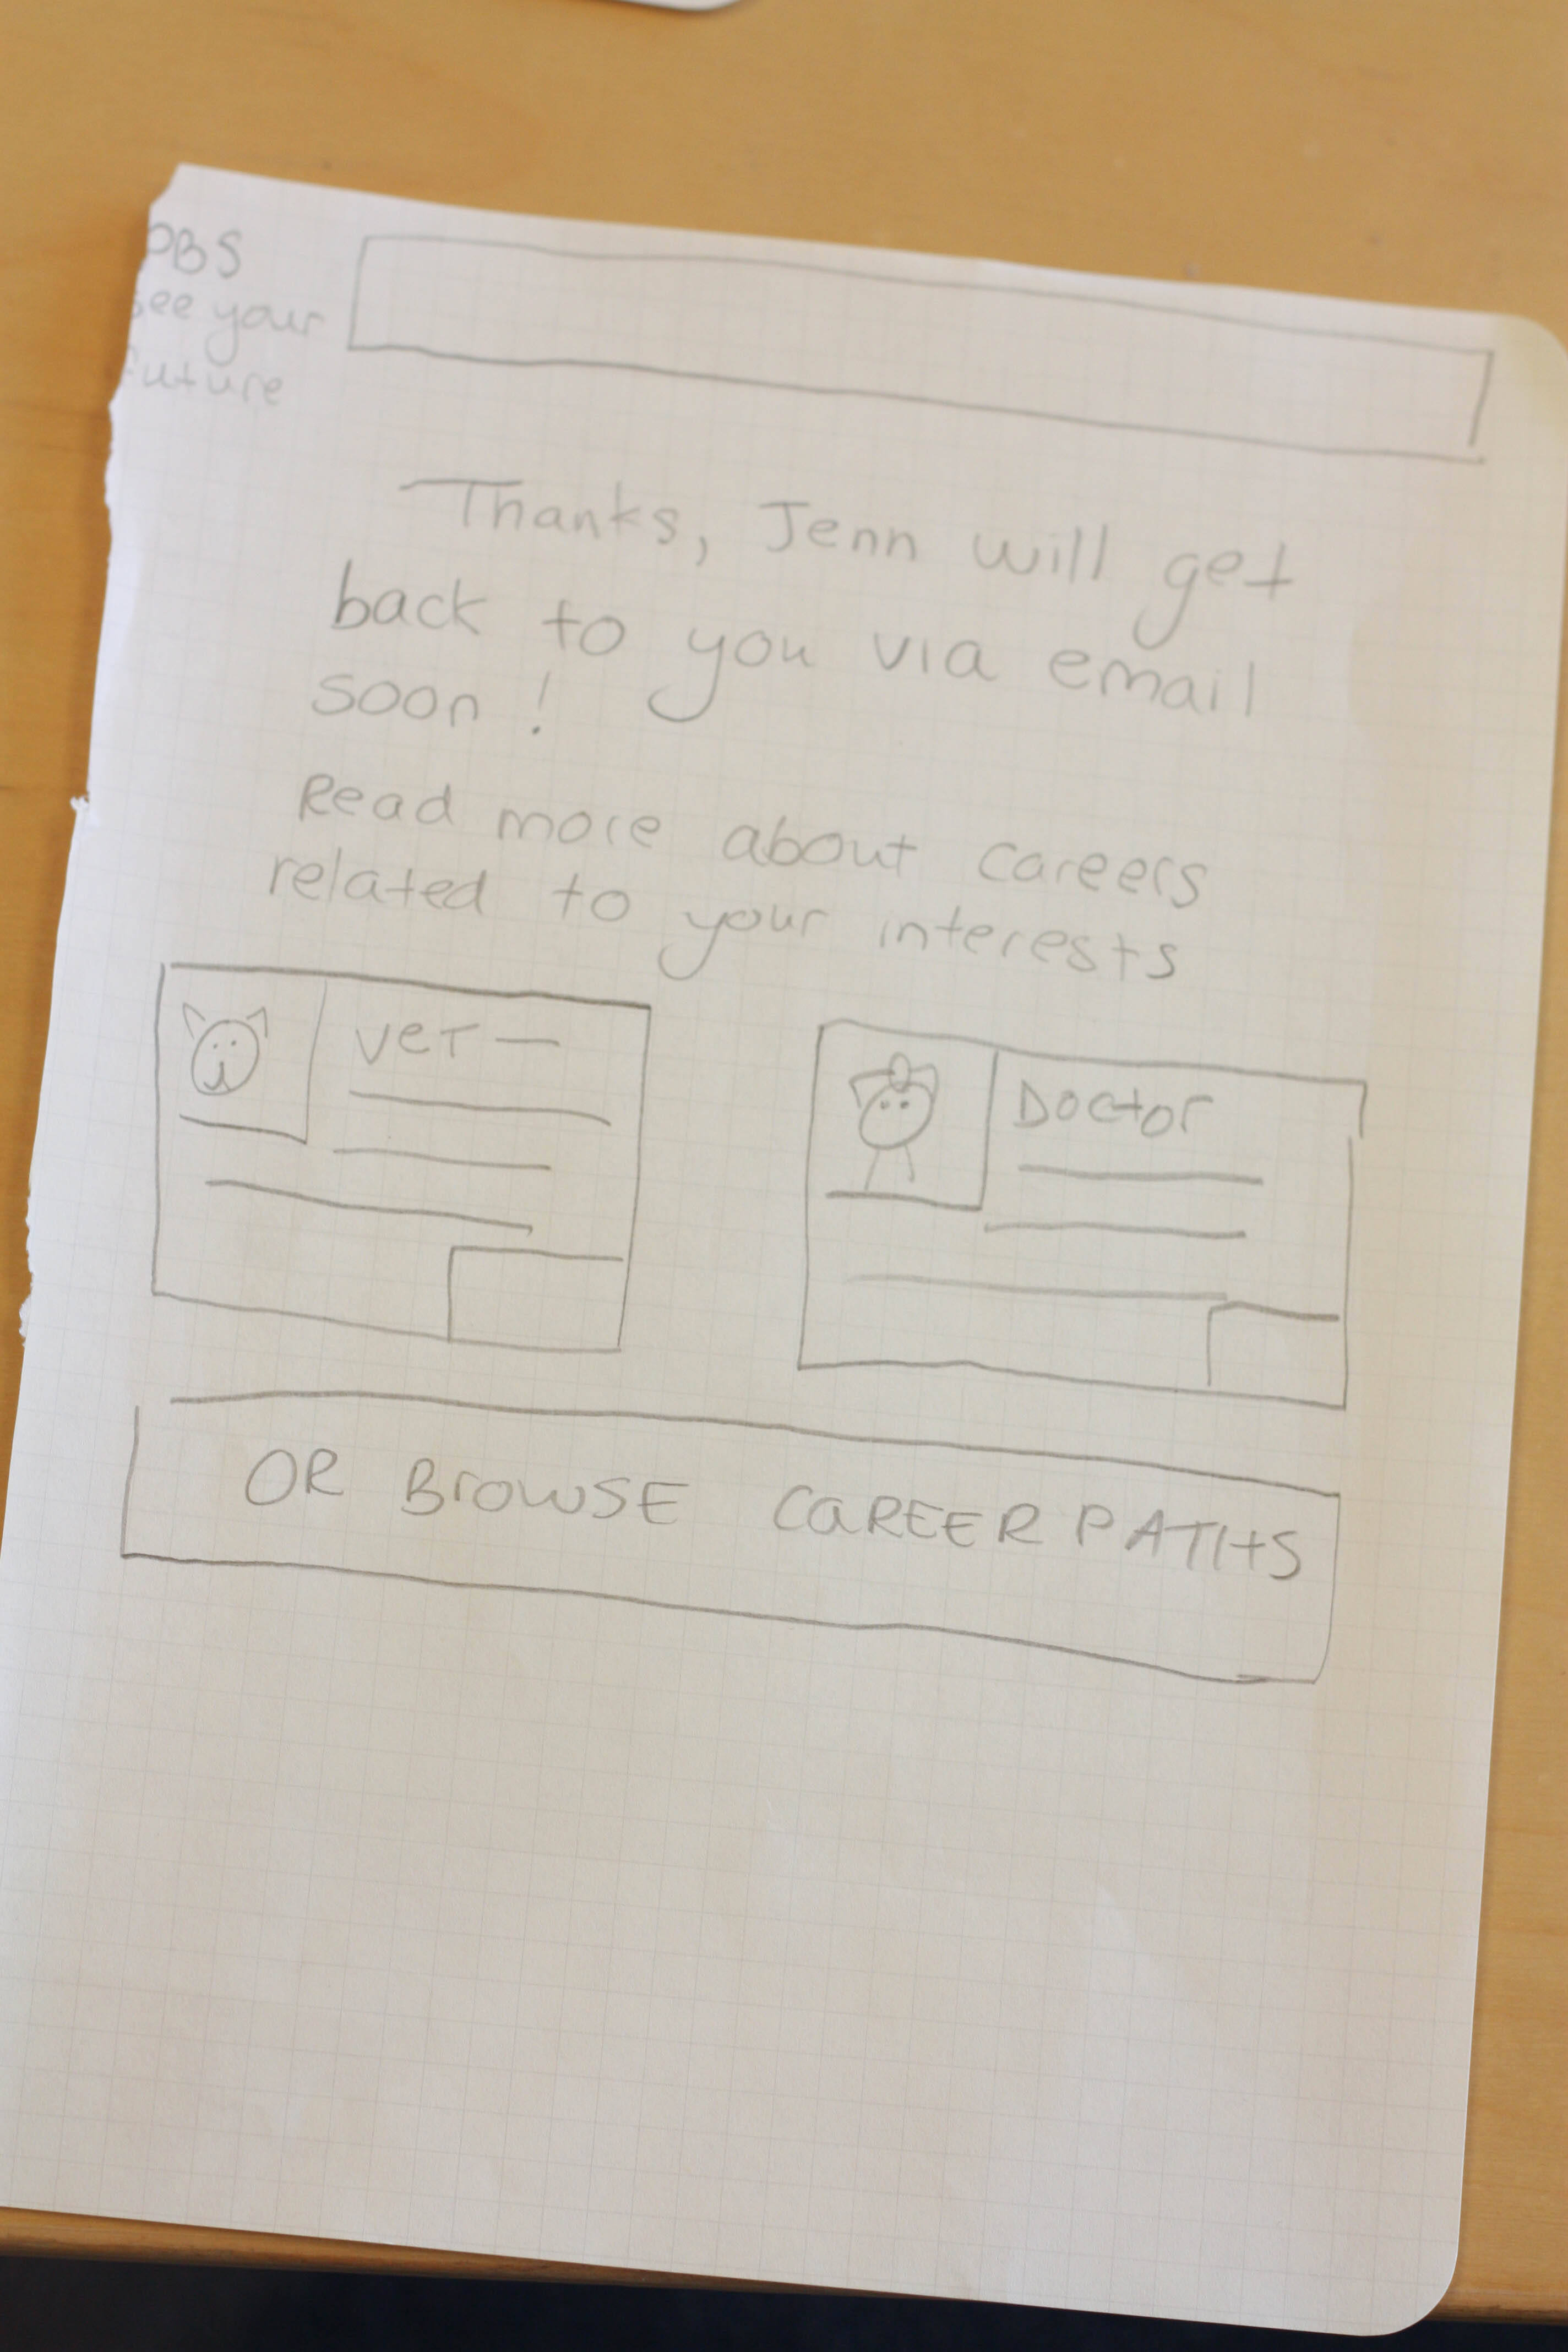 PBS
see your
future
Thanks, Jenn will get
back to you via email
soon!
Read more about careers
related to your interests
VET —
Doctor
OR BROWSE CAREER PATHS